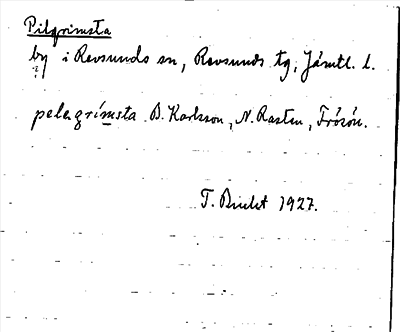 Pilgrimsta
by i Revsunds sn, Revsunds tg, Jämtl. l.
pelegrimsta B. Karlsson, N. Rasten, Frösön.
T. Bucht 1927.